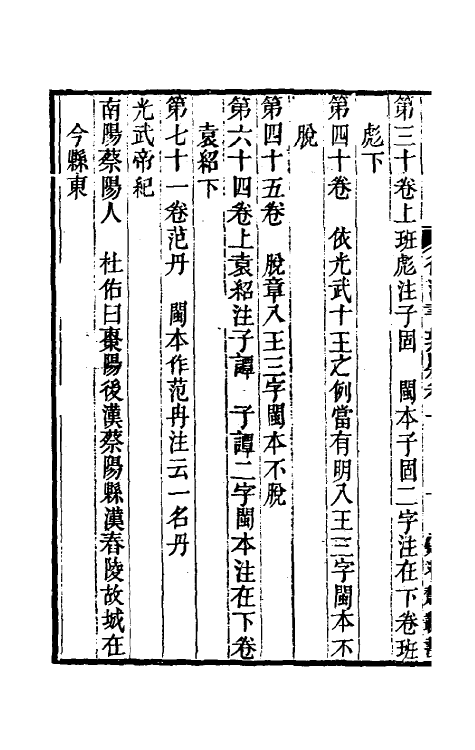 第三十卷上班彪注子固　閩本子固二字注在下卷班
彪下
第四十卷　依光武十王之例當有明八王三字閩本不
脫
第四十五卷　脫章八王三字閩本不脫
第六十四卷上袁紹注子譚　子譚二字閩本注在下卷
袁紹下
第七十一卷范丹　閩本作范冉注云一名丹
光武帝紀
南陽蔡陽人　杜佑曰棗陽後漢蔡陽縣漢舂陵故城在
今縣東